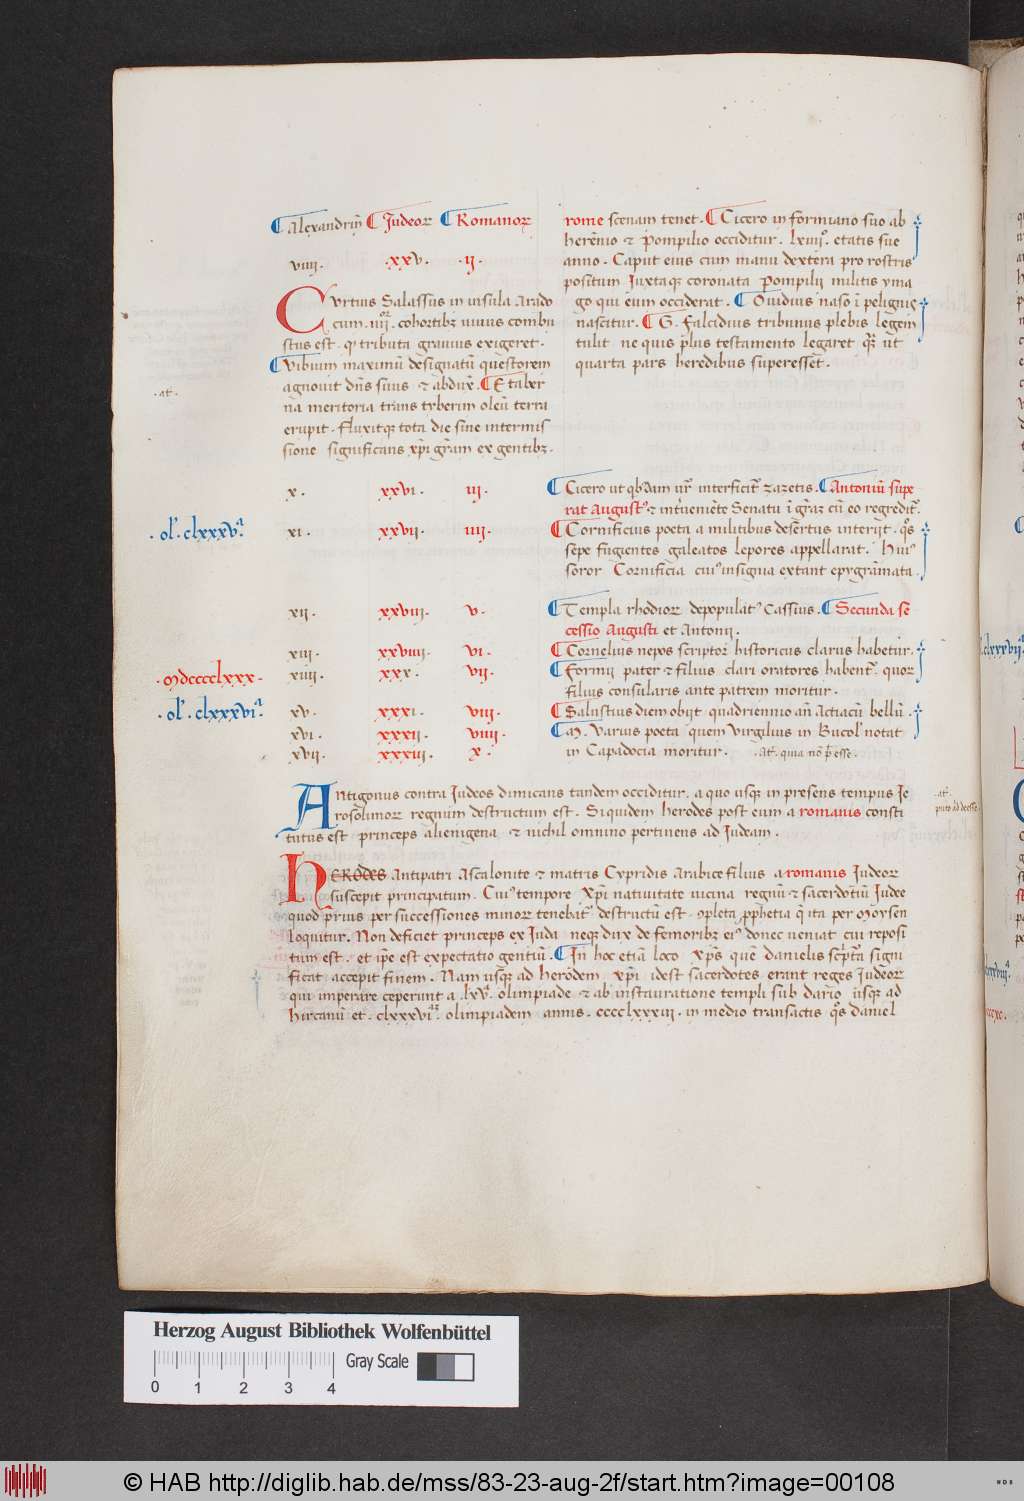 Alexandrin̄ Judeoꝝ Romanoꝝ
viiij. xxv. ij.
Curtius Salassus in insula Arado
cum .iiij.or cohortibꝫ uiuus combu
stus est. ꝙ tributa grauius exigeret.
Vibium maximū designatū questorem
agnouit dn̄s suus ⁊ abdux̄. E taber
na meritoria trans tyberim oleū terra
erupit. Fluxitqꝫ tota die sine intermis
sione significans xp̄i gr̄am ex gentibꝫ.
.at.
rome scenam tenet. Cicero in formiano suo ab
herēnio ⁊ Pompilio occiditur. lxiijo. etatis sue
anno. Caput eius cum manu dextera pro rostris
positum Juxtaqꝫ coronata Pompilij militis yma
go qui eum occiderat. Ouidius naso ī pelignis
nascitur. G. Falcidius tribunus plebis legem
tulit ne quis pl̄us testamento legaret qꝫ ut
quarta pars heredibus superesset.
x. xxvi. iij.
Cicero ut qbdam ur̄ interficit᷑ zazetis. Antoniū supe
rat August9 ⁊ inteueniēte Senatu ī gr̄az cū eo regredit᷑.
.ol'. clxxxva. xi. xxvij. iiij.
Cornificius poeta a militibus desertus interijt. qo̅s
sepe fugientes galeatos lepores appellarat. hui9
soror Cornificia cui9 insignia extant epygrāmata.
xij. xxviij. v.
Templa rhodioꝝ depopulat9 Cassius. Secunda se
cessio Augusti et Antonij.
xiij. xxviiij. vi.
Cornelius nepos scriptor historicus clarus habetur.
.Mdcccclxxx. xiiij. xxx. vij.
Formij pater ⁊ filius clari oratores habent᷑. quoꝝ
filius consularis ante patrem moritur.
.ol'. clxxxvia. xv. xxxi. viij.
Salustius diem obijt. quadriennio an̄ Actiacū bellū.
xvi. xxxij. viiij.
M. Varius poeta quem Virgilius in Bucol' notat
xvij. xxxiij. x.
in Capadocia moritur. .at. quia nō p̄esse.
Antigonus contra Judeos dimicans tandem occiditur. a quo usqꝫ in presens tempus Je
rosolimoꝝ regnum destructum est. Siquidem herodes post eum a romanis consti
tutus est princeps alienigena ⁊ nichil omnino pertinens ad Judeam.
HERODES Antipatri Ascalonite ⁊ matris Cypridis Arabice filius a romanis Judeoꝝ
suscepit principatum. Cui9 tempore Xp̄i natiuitate uicina regnū ⁊ sacerdotiū Judee
quod prius per successiones minoꝝ tenebat᷑ destructū est. ꝯpleta ꝓphetia q̄ ita per Moysen
loquitur. Non deficiet princeps ex Juda neqꝫ dux de femoribꝫ ei9 donec ueniat cui reposi
tum est. et ip̄e est expectatio gentiū. Jn hoc etiā loco xp̄s quē danielis scp̄tā signi
ficat accepit finem. Nam usqꝫ ad herōdem xp̄i idest sacerdotes erant reges Judeoꝝ
qui imperare ceperunt a .lxva. olimpiade ⁊ ab instauratione templi sub dario usqꝫ ad
hircanū et. clxxxvi. olimpiadem annis. cccclxxxiij. in medio transactis qo̅s daniel
Herzog August Bibliothek Wolfenbüttel
Gray Scale
0 1 2 3 4
© HAB http://diglib.hab.de/mss/83-23-aug-2f/start.htm?image=00108